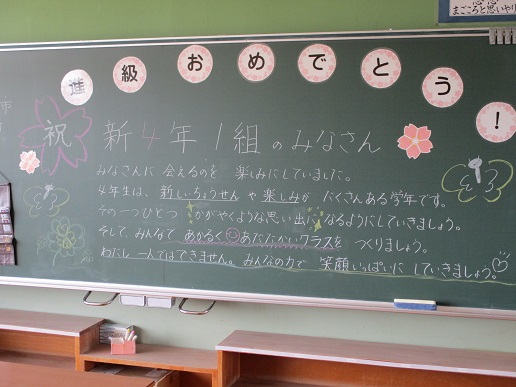 まごころと思いやり
進級おめでとう!
祝 新4年1組のみなさん
みなさんに会えるのを楽しみにしていました。
4年生は、新しいちょうせんや楽しみがたくさんある学年です。
その一つひとつがかがやくような思い出になるようにしていきましょう。
そして、みんなであかるくあたたかいクラスをつくりましょう。
わたし一人ではできません。みんなの力で笑顔いっぱいにしていきましょう。